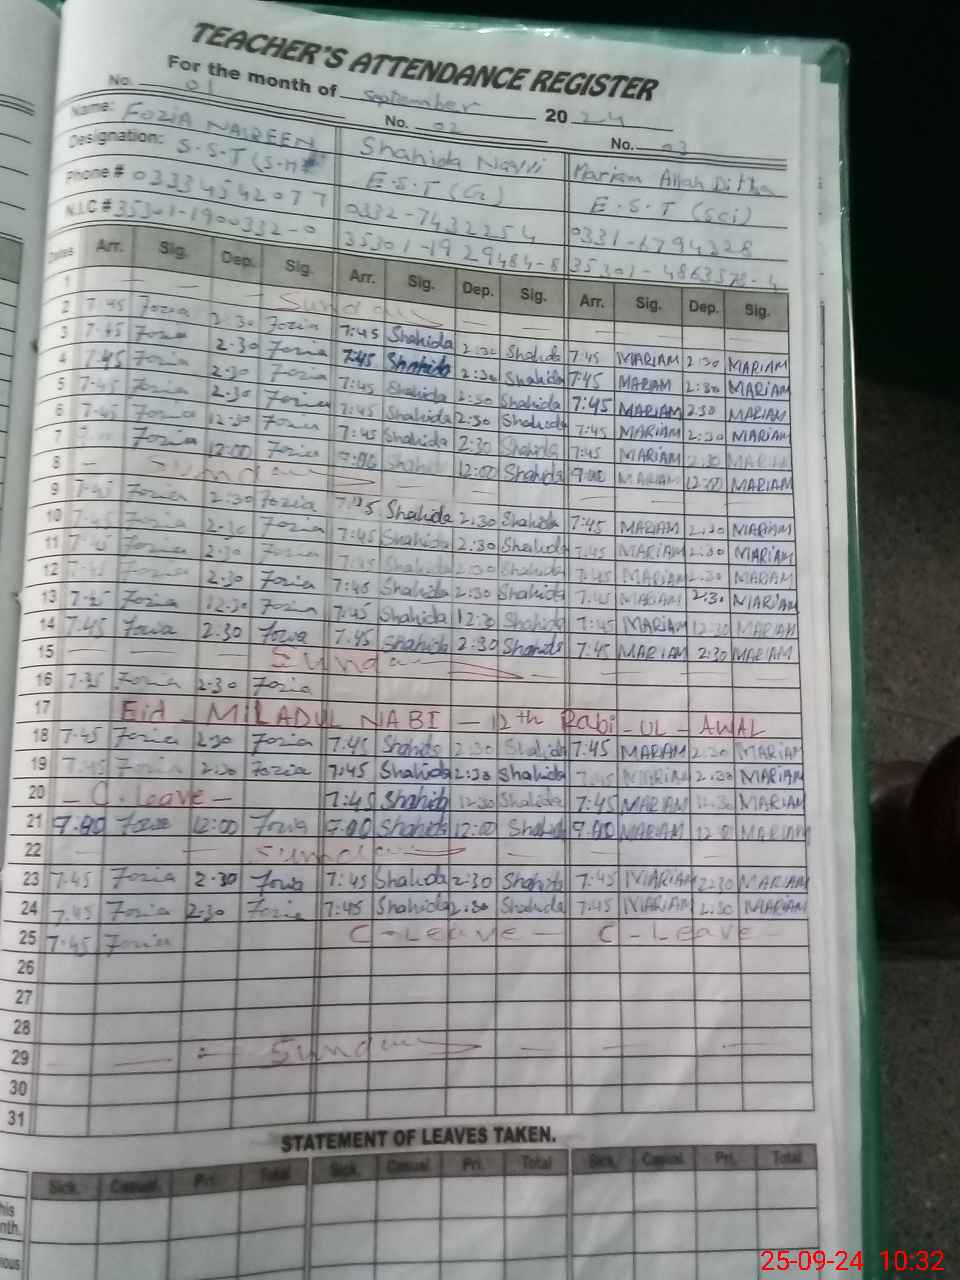 TEACHER'S ATTENDANCE REGISTER
For the month of September 2024
No. 01 No. 02 No. 03
Name: FOZIA NAUREEN Shahida Naqvi Mariam Allah Ditha
Designation: S.S.T E.S.T (G) E.S.T (Sci)
Phone # 03334542077 0332-7432254 0331-6794328
N.I.C # 35301-1900332-0 35301-1929484-8
Dates Arr. Sig. Dep. Sig. Arr. Sig. Dep. Sig. Arr. Sig. Dep. Sig.
1 Sunday
2 7:45 Fozia 2:30 Fozia 7:45 Shahida 2:30 Shahida 7:45 MARIAM 2:30 MARIAM
3 7:45 Fozia 2:30 Fozia 7:45 Shahida 2:30 Shahida 7:45 MARIAM 2:30 MARIAM
4 7:45 Fozia 2:30 Fozia 7:45 Shahida 2:30 Shahida 7:45 MARIAM 2:30 MARIAM
5 7:45 Fozia 2:30 Fozia 7:45 Shahida 2:30 Shahida 7:45 MARIAM 2:30 MARIAM
6 7:45 Fozia 12:30 Fozia 7:45 Shahida 2:30 Shahida 7:45 MARIAM 2:30 MARIAM
7 Fozia 12:00 Fozia 9:00 Shahida 12:00 Shahida 9:00 MARIAM 12:00 MARIAM
8 Sunday
9 7:45 Fozia 2:30 Fozia 7:45 Shahida 2:30 Shahida 7:45 MARIAM 2:30 MARIAM
10 7:45 Fozia 2:30 Fozia 7:45 Shahida 2:30 Shahida 7:45 MARIAM 2:30 MARIAM
11 7:45 Fozia 2:30 Fozia 7:45 Shahida 2:30 Shahida 7:45 MARIAM 2:30 MARIAM
12 7:45 Fozia 2:30 Fozia 7:45 Shahida 2:30 Shahida 7:45 MARIAM 2:30 MARIAM
13 7:45 Fozia 12:30 Fozia 7:45 Shahida 12:30 Shahida 7:45 MARIAM 12:30 MARIAM
14 7:45 Fozia 2:30 Fozia 7:45 Shahida 2:30 Shahida 7:45 MARIAM 2:30 MARIAM
15 Sunday
16 7:45 Fozia 2:30 Fozia
17 Eid - MILADUL NABI - 12th Rabi - UL - AWAL
18 7:45 Fozia 2:30 Fozia 7:45 Shahida 2:30 Shahida 7:45 MARIAM 2:30 MARIAM
19 7:45 Fozia 2:30 Fozia 7:45 Shahida 2:30 Shahida 7:45 MARIAM 2:30 MARIAM
20 - C. leave - 7:45 Shahida 12:30 Shahida 7:45 MARIAM 12:30 MARIAM
21 9:00 Fozia 12:00 Fozia 9:00 Shahida 12:00 Shahida 9:00 MARIAM MARIAM
22 Sunday
23 7:45 Fozia 2:30 Fozia 7:45 Shahida 2:30 Shahida 7:45 MARIAM 2:30 MARIAM
24 7:45 Fozia 2:30 Fozia 7:45 Shahida 2:30 Shahida 7:45 MARIAM 2:30 MARIAM
25 7:45 Fozia C - Leave - C - Leave -
26
27
28
29 Sunday
30
31
STATEMENT OF LEAVES TAKEN.
Sick. Casual. Pri. Total Sick. Casual. Pri. Total Sick. Casual. Pri. Total
25-09-24 10:32